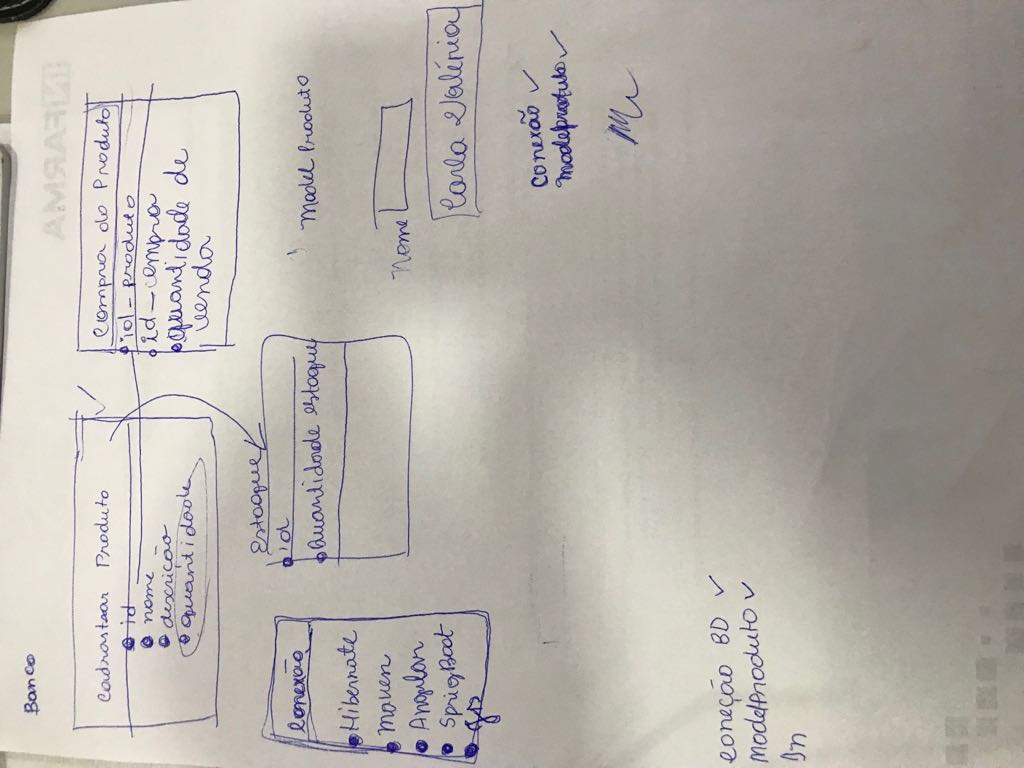 Banco
Cadrastaar Produto
id
nome
descrição
quantidade
Compra do Produto
id - produto
id - compra
quantidade de
venda
Estoque
id
Quantidade estoque
Model Produto
Conexão
Hibernate
Maven
Angular
SprigBoot
Nome
Carla Valéria
conexão ✓
modelproduto ✓
coneção BD ✓
ModelProduto ✓
INIFARMA